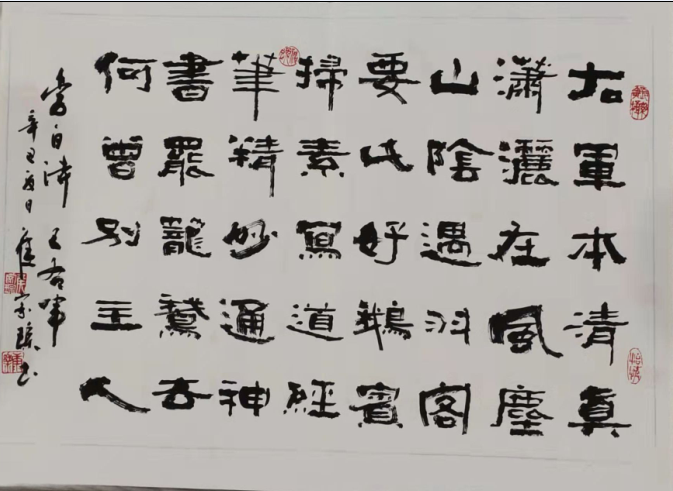 右軍本清真
瀟灑在風塵
山陰遇羽客
要此好鵝賓
掃素寫道經
筆精妙通神
書罷籠鵞去
何曾別主人
白诗 王右軍
辛丑夏日 崔宗 书